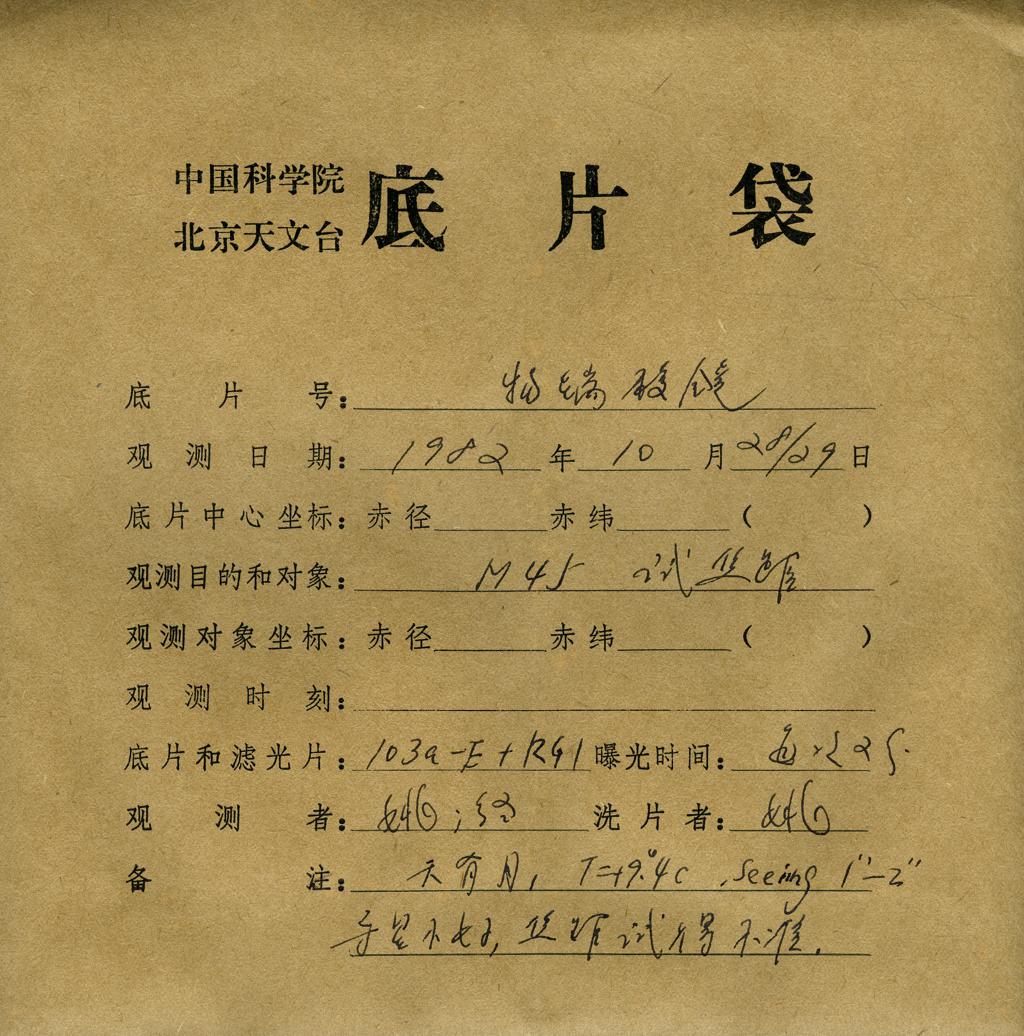 中国科学院
北京天文台
底片袋
底片号：物端
观测日期：1982年10月28/29日
底片中心坐标：赤径 赤纬 （ ）
观测目的和对象：M45 试焦距
观测对象坐标：赤径 赤纬 （ ）
观测时刻：
底片和滤光片：103a-E+RG1 曝光时间：每次2S.
观测者： 洗片者：
备注：天有月，T=+9.°4c .Seeing 1"-2"
导星不好，焦距试得不准.